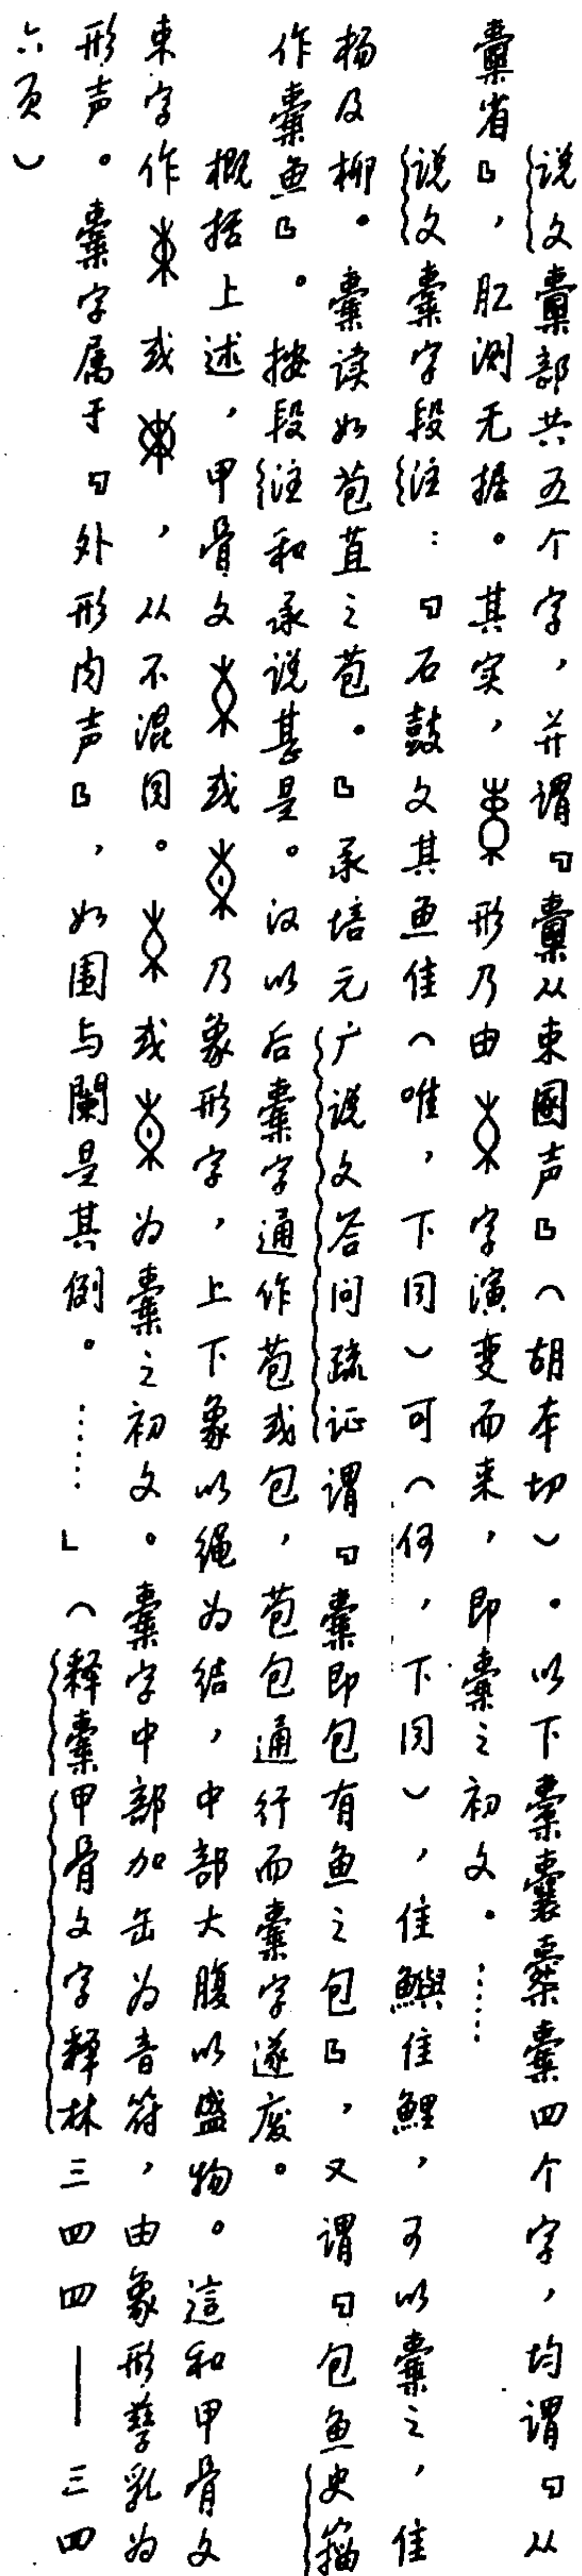 说文橐部共五个字，并谓「橐从束圂声」（胡本切）。以下橐囊櫜㯱四个字，均谓「从
橐省」，肊测无据。其实，形乃由字演变而来，即㯱之初文。……
说文㯱字段注：「石鼓文其鱼隹（唯，下同）可（何，下同），隹鱮隹鲤，可以㯱之，隹
杨及柳。㯱读如苞苴之苞。」承培元广说文答问疏证谓「㯱即包有鱼之包」，又谓「包鱼史籀
作㯱鱼」。按段注和承说甚是。汉以后㯱字通作苞或包，苞包通行而㯱字遂废。
概括上述，甲骨文或乃象形字，上下象以绳为结，中部大腹以盛物。這和甲骨文
束字作或，从不混同。或为㯱之初文。㯱字中部加缶为音符，由象形孳乳为
形声。㯱字属于「外形内声」，如围与闌是其例。……」（释㯱甲骨文字释林三四四——三四
六页）